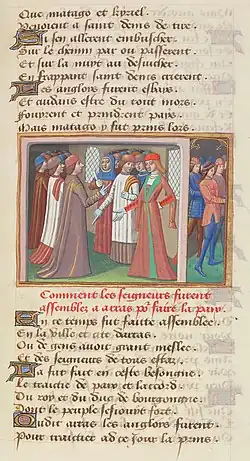 Que matago et kyriel.
Venoient a saint denis de tire.
Si sen allerent embuscher
Sur le chemin par ou passerent
Et sur la nuyt au desiucher
En frappant saint denis crierent.
Les anglois furent esbays
Et cuidans estre du tout mors
Fouyrent et prindrent pays
Mais matago y fut prins lors.
Comment les seigneurs furent
assemblez a arras po faire la paix.
En ce temps fut faitte assemblee.
En la ville et cite darras
Ou de gens avoit grant meslee
Et des seigneurs de tous estaz.
La fut fait en ceste besongne.
Le traittie de paix et laccord
Du roy et du duc de bourgongne.
Dont le peuple sesiouyt fort.
Audit arras les anglois furent.
Pour traictier ad ce jour la prins.